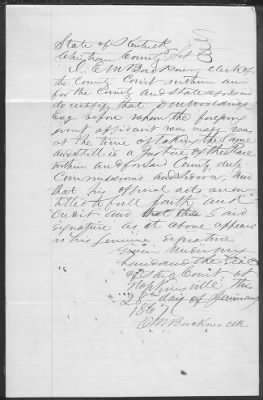 State of Kentucky
Christian County Sct
I, E M Buckner clerk of
the County Court within and
for the County and State aforesaid
do certify that D M Wooldridge
Esqr before whom the foregoing
affidavit was made was
at the time of taking the same
and still is a Justice of the Peace
within and for said County duly
Commissioned and sworn and
that his official acts are en-
titled to full faith and
credit and that the said
signature as it above appears
is his Genuine signature
Given under my
hand and the seal
of said Court at
Hopkinsville this
28th day of January
1867
E M Buckner clk